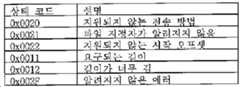 상태 코드 설명
0x0020 지원되지 않는 전송 방법
0x0021 파일 지정자가 알려지지 않음
0x0022 지원되지 않는 시작 오프셋
0x0011 요구되는 길이
0x0012 길이가 너무 김
0x002F 알려지지 않은 에러